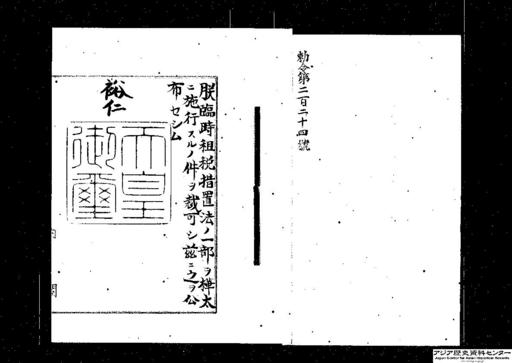 勅令第二百二十四號
朕臨時租税措置法ノ一部ヲ樺太
ニ施行スルノ件ヲ裁可シ茲ニ之ヲ公
布セシム
裕仁
天皇
御璽
内閣
アジア歴史資料センター
Japan Center for Asian Historical Records